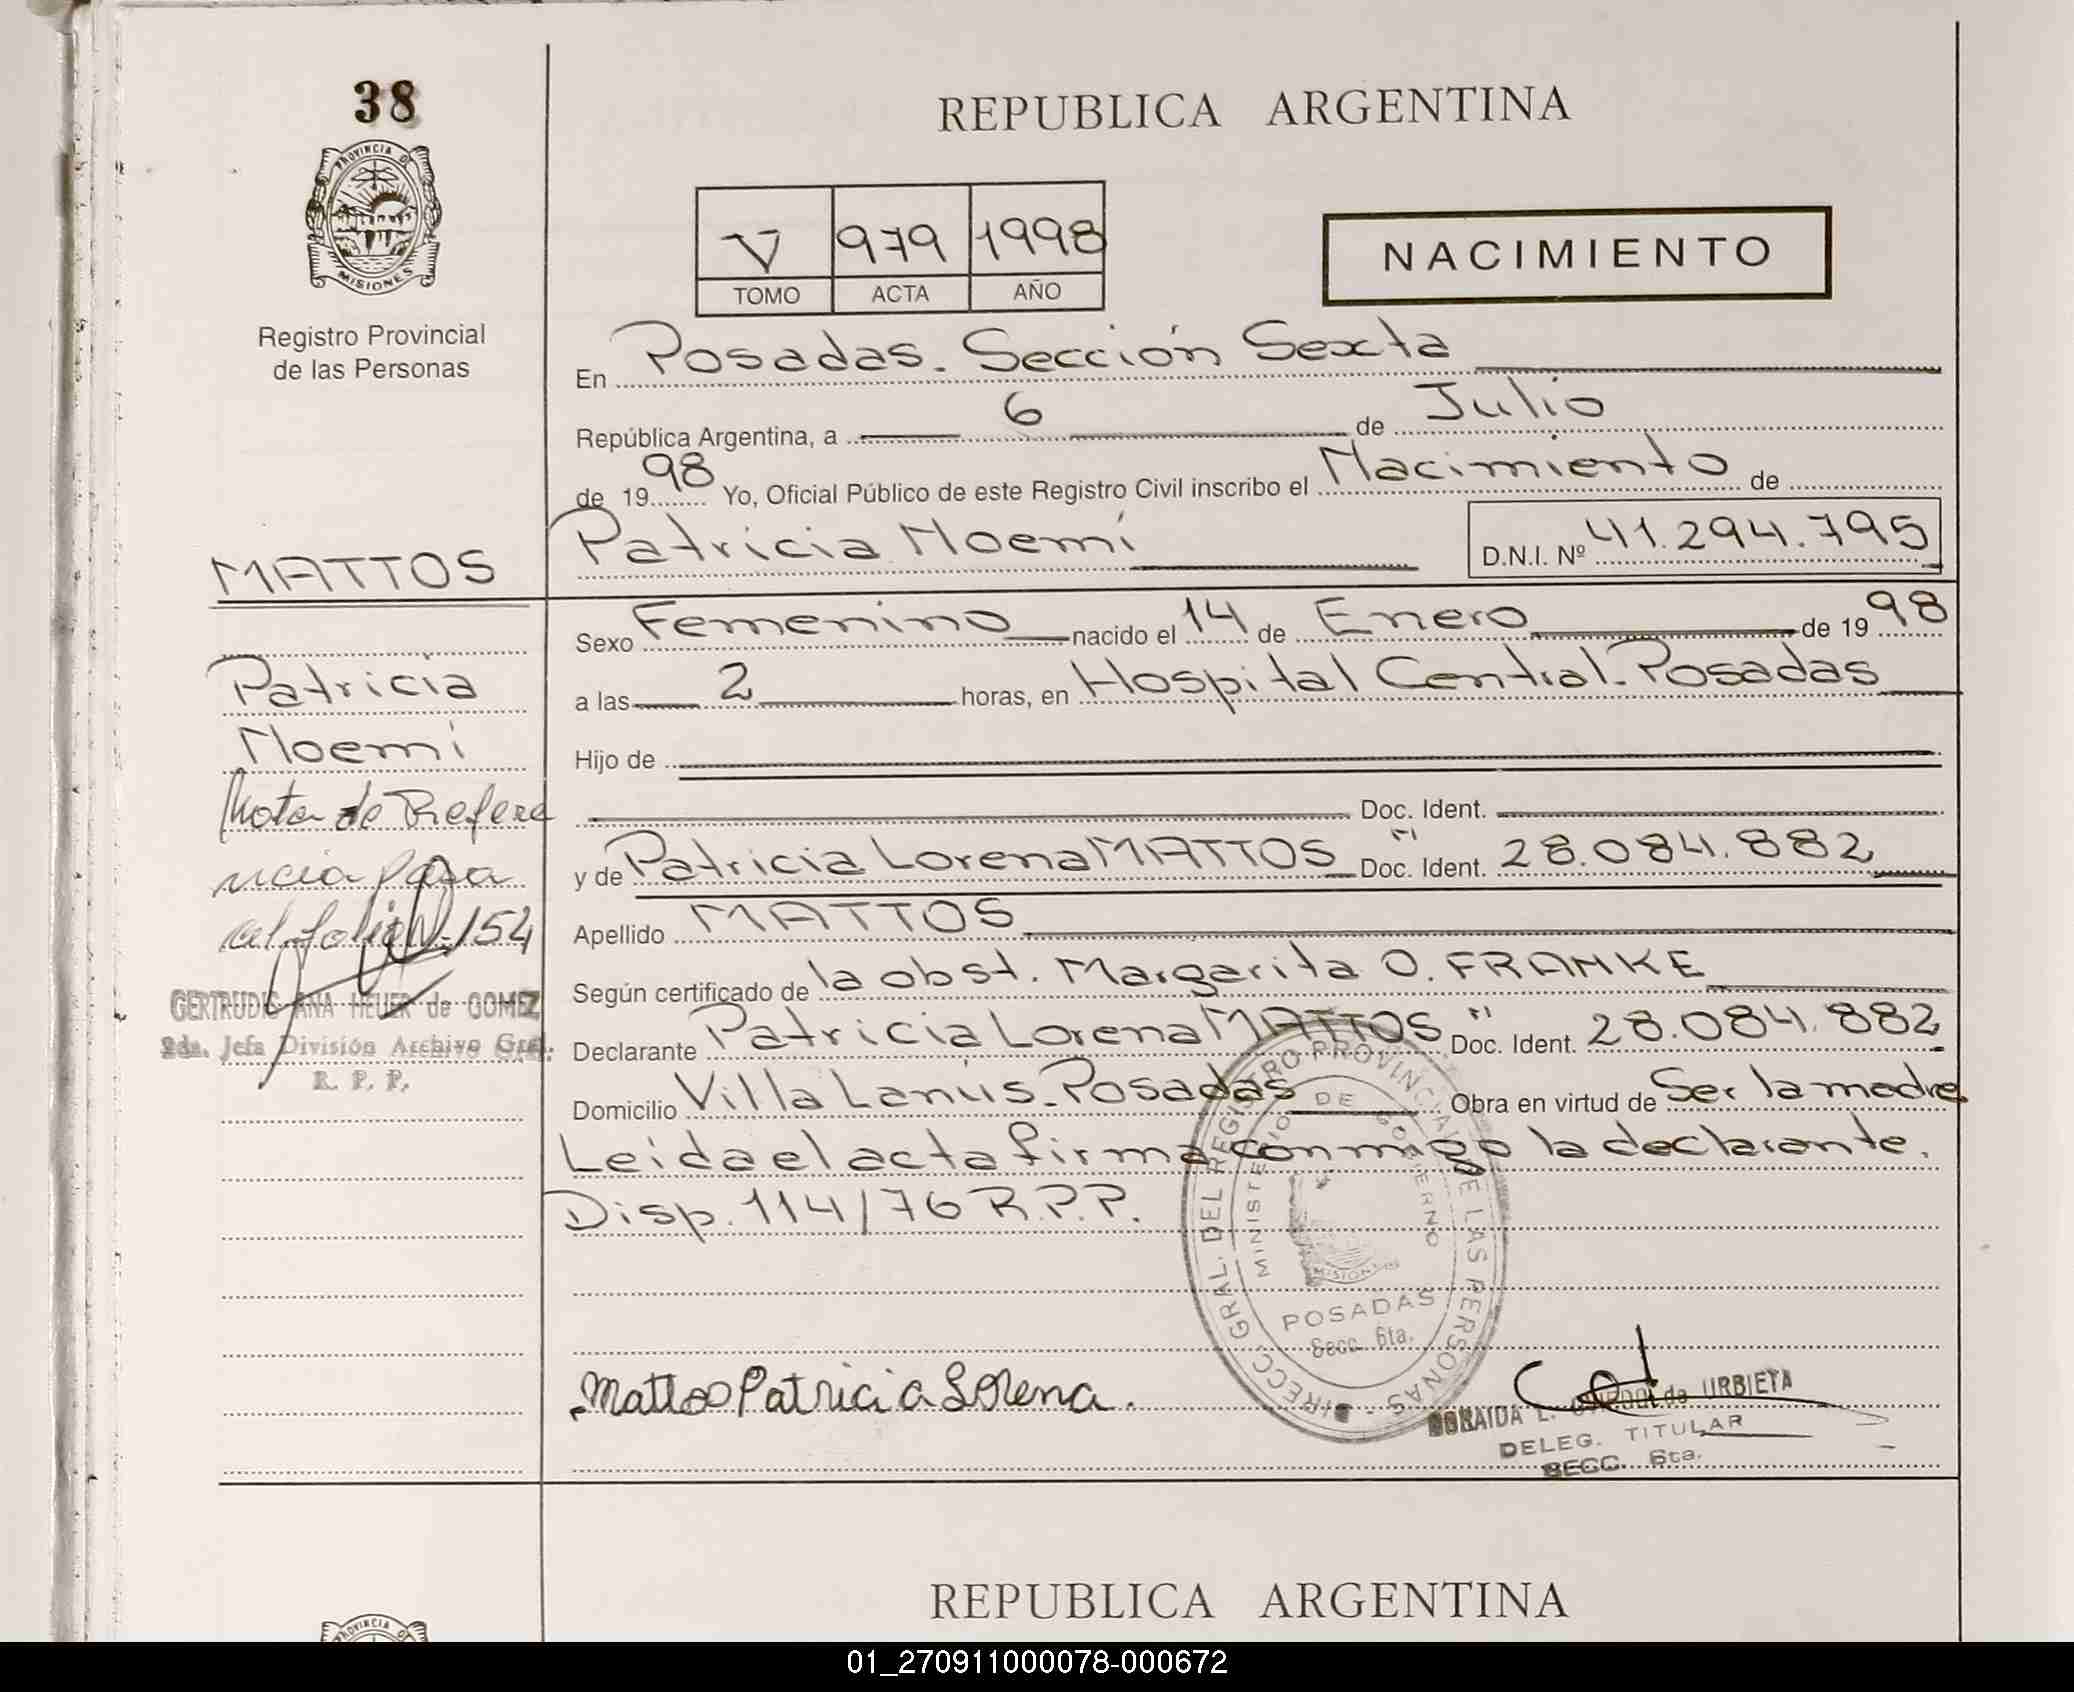 38
PROVINCIA D
MISIONES
Registro Provincial
de las Personas
REPUBLICA ARGENTINA
V 979 1998
TOMO ACTA AÑO
NACIMIENTO
En Posadas. Sección Sexta
República Argentina, a 6 de Julio
de 1998 Yo, Oficial Público de este Registro Civil inscribo el Nacimiento de
Patricia Noemí D.N.I. Nº 41.294.795
MATTOS
Patricia
Noemí
Nota de Refere
ncia para
el folio Nº 154
GERTRUDIS ANA HEUER de GOMEZ
2da. Jefa División Archivo Gral.
R. P. P.
Sexo Femenino nacido el 14 de Enero de 1998
a las 2 horas, en Hospital Central-Posadas
Hijo de
Doc. Ident.
y de Patricia Lorena MATTOS Doc. Ident. 28.084.882
Apellido MATTOS
Según certificado de la obst. Margarita O. FRANKE
Declarante Patricia Lorena MATTOS Doc. Ident. 28.084.882
Domicilio Villa Lanús-Posadas Obra en virtud de Ser la madre
Leida el acta firma conmigo la declarante.
Disp. 114/76 R.P.P.
DIRECC. GRAL. DEL REGISTRO PROVINCIAL DE LAS PERSONAS
MINISTERIO DE GOBIERNO
MISIONES
POSADAS
Secc. 6ta.
Mattos Patricia Lorena.
de URBIETA
DELEG. TITULAR
SECC. 6ta.
REPUBLICA ARGENTINA
PROVINCIA
01_270911000078-000672